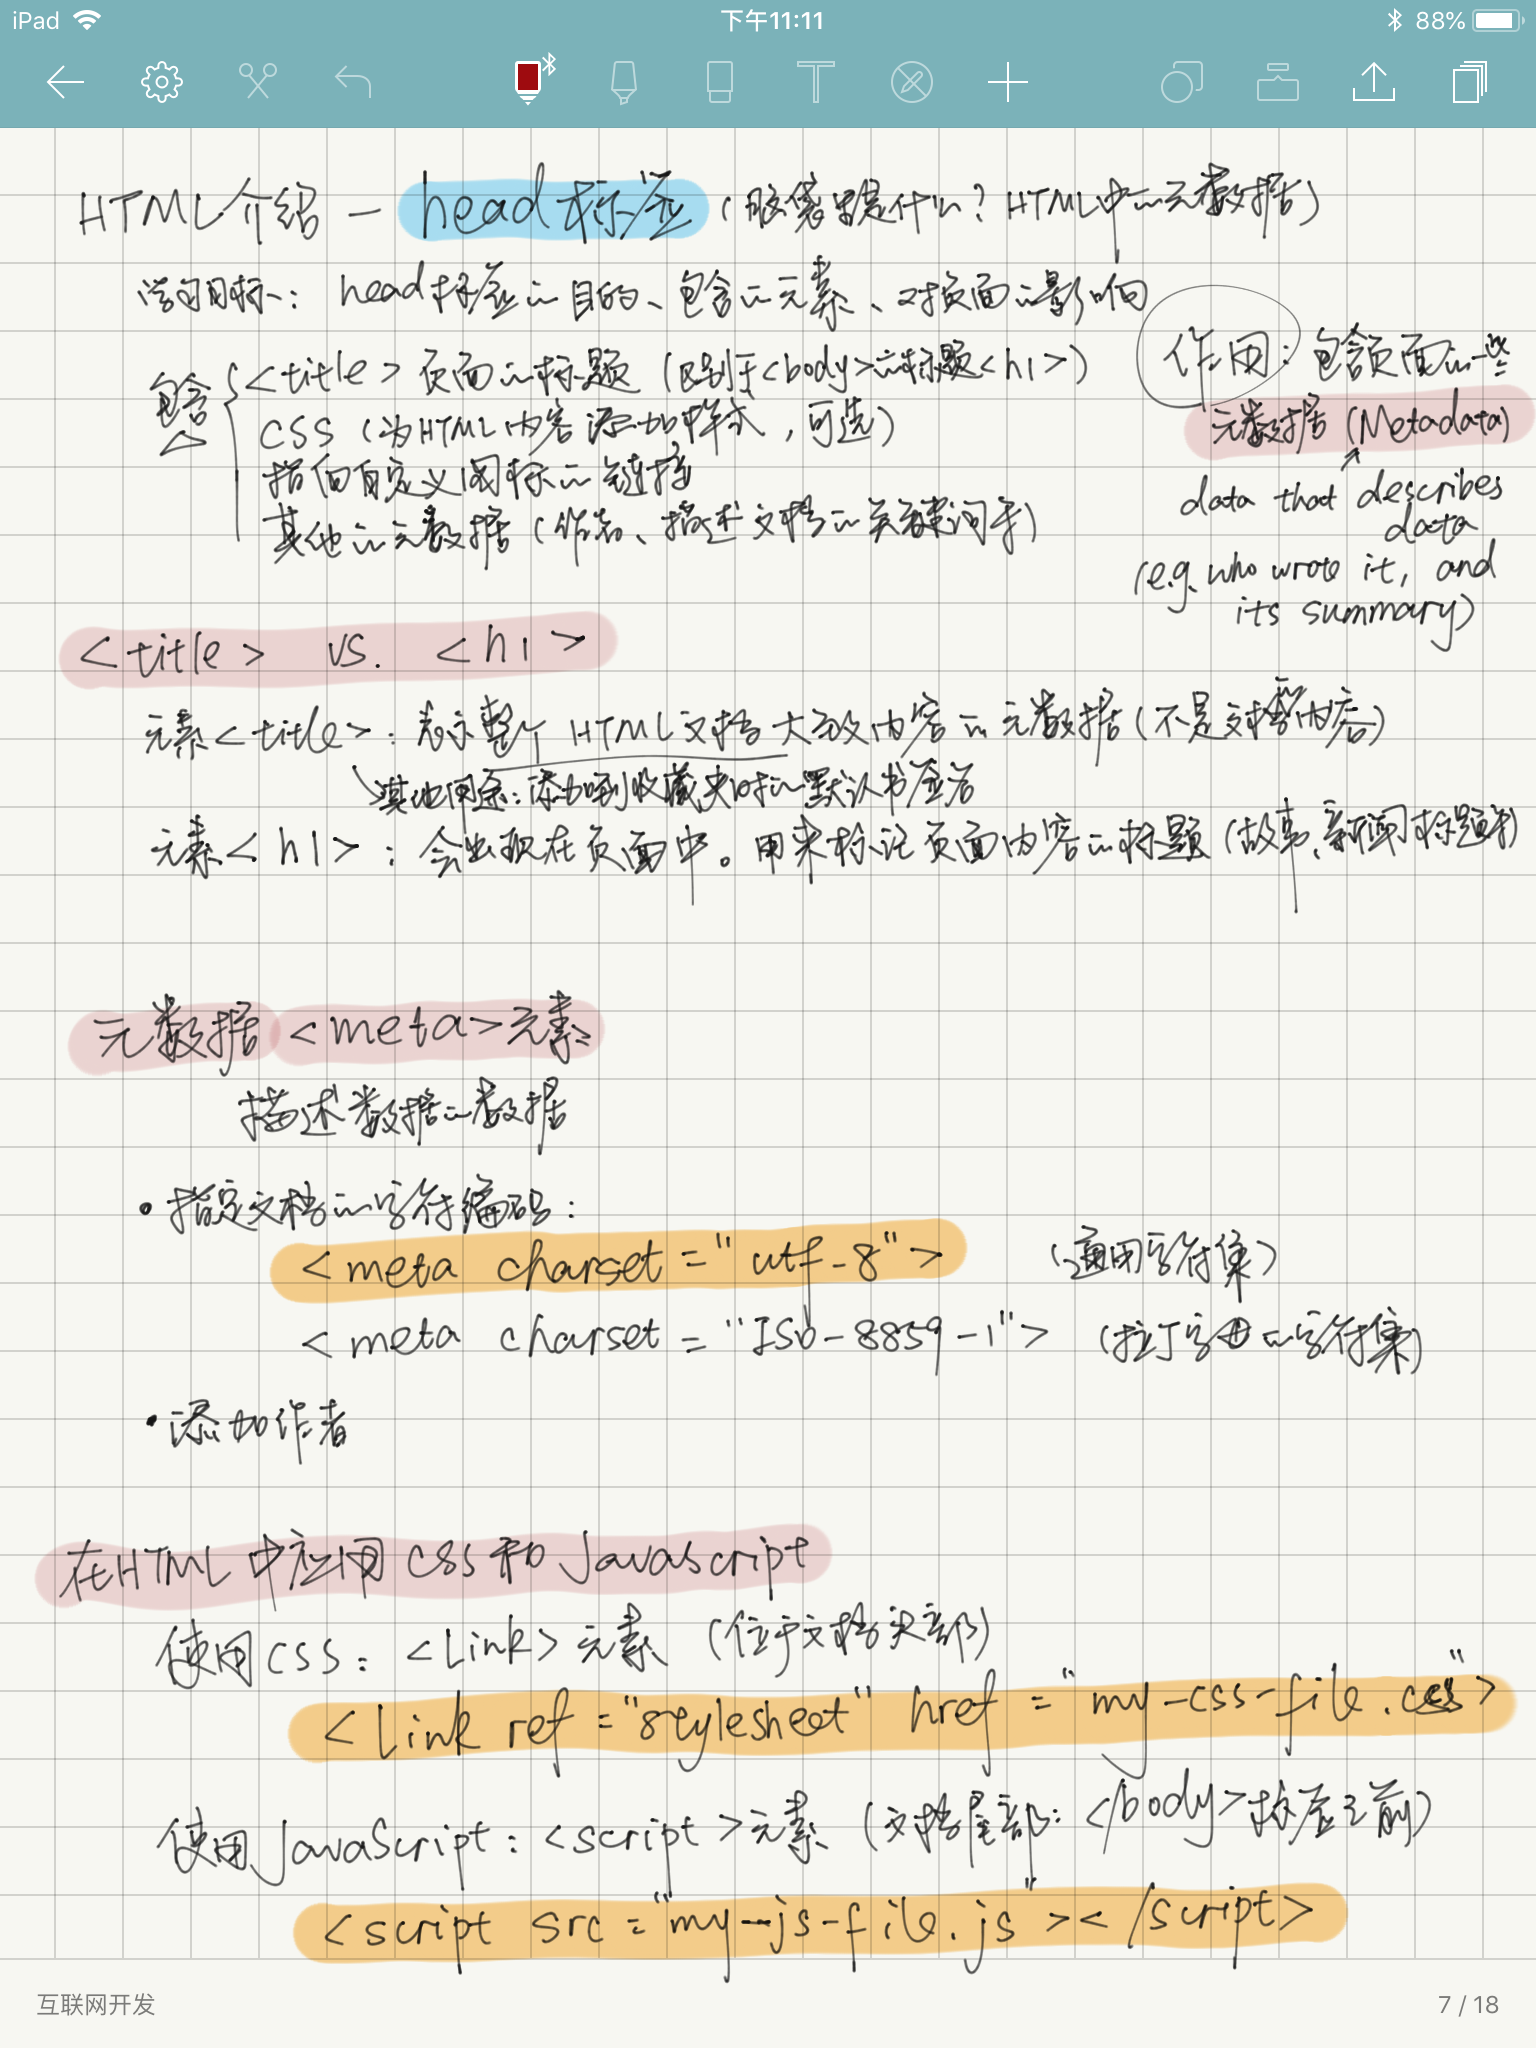 iPad 下午11:11 88%
HTML介绍 — head标签 (脑袋里是什么? HTML中的元数据)
学习目标: head标签的目的、包含的元素、对页面的影响
包含 <title> 页面的标题 (区别于<body>的标题<h1>)
CSS (为HTML内容添加样式, 可选)
指向自定义图标的链接
其他的元数据 (作者、描述文档的关键词等)
作用: 包含页面的一些
元数据 (Metadata)
data that describes
data
(e.g. who wrote it, and
its summary)
<title> vs. <h1>
元素<title>: 表示整个 HTML文档大致内容的元数据 (不是文档内容)
其他用途: 添加到收藏夹时的默认书签名
元素<h1>: 会出现在页面中。用来标记页面内容的标题 (故事、新闻标题等)
元数据 <meta>元素
描述数据的数据
• 指定文档的字符编码:
<meta charset="utf-8"> (通用字符集)
<meta charset="ISO-8859-1"> (拉丁字母的字符集)
• 添加作者
在HTML中应用CSS和Javascript
使用CSS: <link>元素 (位于文档头部)
<link ref="stylesheet" href="my-css-file.css">
使用JavaScript: <script>元素 (文档尾部: </body>标签之前)
<script src="my-js-file.js"></script>
互联网开发 7 / 18